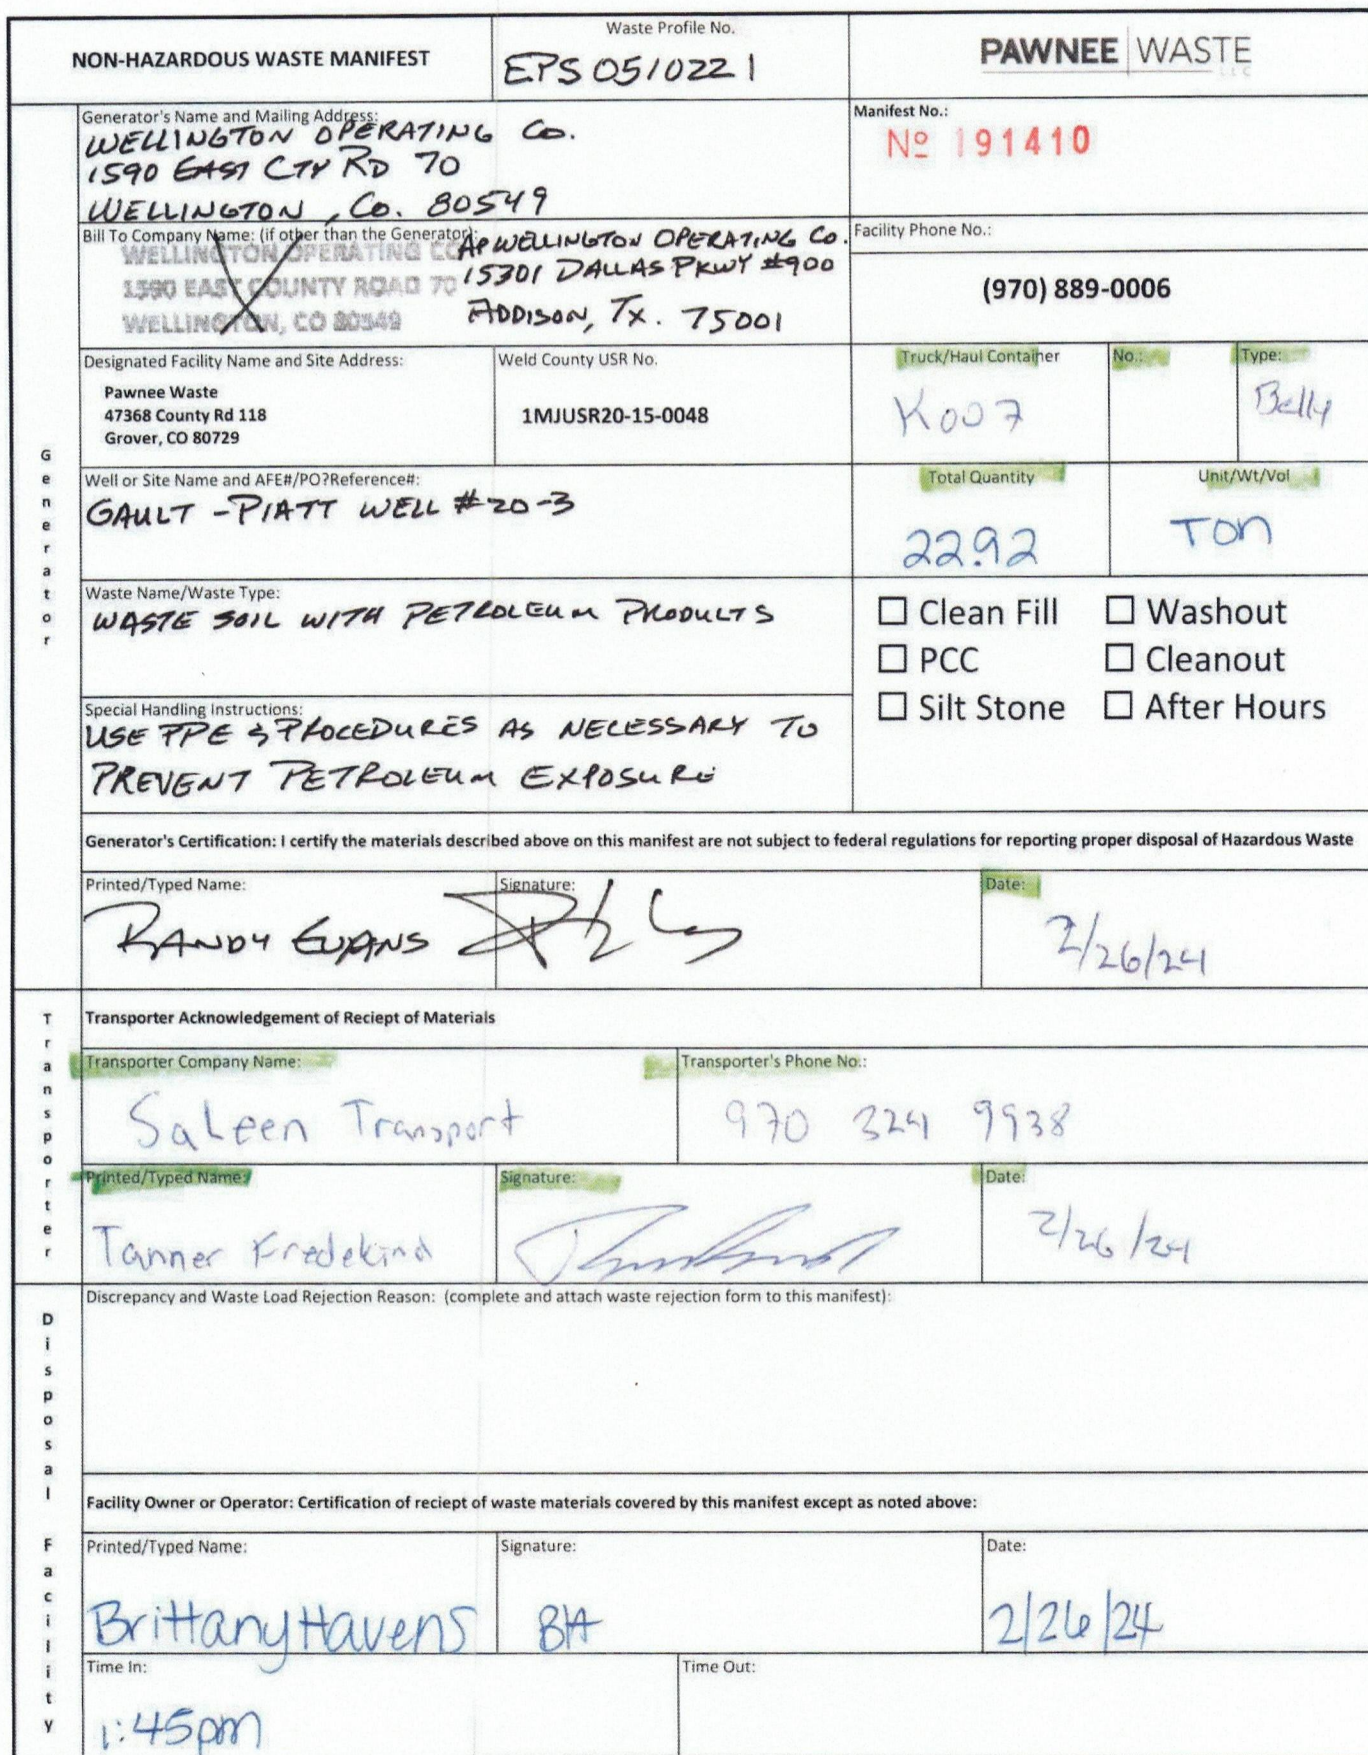 NON-HAZARDOUS WASTE MANIFEST
Waste Profile No.
EPS 0510221
PAWNEE WASTE
LLC
Generator's Name and Mailing Address:
WELLINGTON OPERATING Co.
1590 EAST CTY RD 70
WELLINGTON, Co. 80549
Manifest No.:
Nº 191410
Bill To Company Name: (if other than the Generator):
WELLINGTON OPERATING CO
1590 EAST COUNTY ROAD 70
WELLINGTON, CO 80549
AP WELLINGTON OPERATING Co.
15301 DALLAS PKWY #900
ADDISON, TX. 75001
Facility Phone No.:
(970) 889-0006
Designated Facility Name and Site Address:
Pawnee Waste
47368 County Rd 118
Grover, CO 80729
Weld County USR No.
1MJUSR20-15-0048
Truck/Haul Container
K007
No.:
Type:
Belly
Generator
Well or Site Name and AFE#/PO?Reference#:
GAULT - PIATT WELL #20-3
Total Quantity
22.92
Unit/Wt/Vol
TON
Waste Name/Waste Type:
WASTE SOIL WITH PETROLEUM PRODUCTS
☐ Clean Fill ☐ Washout
☐ PCC ☐ Cleanout
☐ Silt Stone ☐ After Hours
Special Handling Instructions:
USE PPE & PROCEDURES AS NECESSARY TO
PREVENT PETROLEUM EXPOSURE
Generator's Certification: I certify the materials described above on this manifest are not subject to federal regulations for reporting proper disposal of Hazardous Waste
Printed/Typed Name:
RANDY EVANS
Signature:
Date:
2/26/24
Transporter
Transporter Acknowledgement of Reciept of Materials
Transporter Company Name:
Saleen Transport
Transporter's Phone No.:
970 324 9938
Printed/Typed Name:
Tanner Fredekind
Signature:
Date:
2/26/24
Disposal Facility
Discrepancy and Waste Load Rejection Reason: (complete and attach waste rejection form to this manifest):
Facility Owner or Operator: Certification of reciept of waste materials covered by this manifest except as noted above:
Printed/Typed Name:
Brittany Havens
Signature:
BH
Date:
2/26/24
Time In:
1:45pm
Time Out: